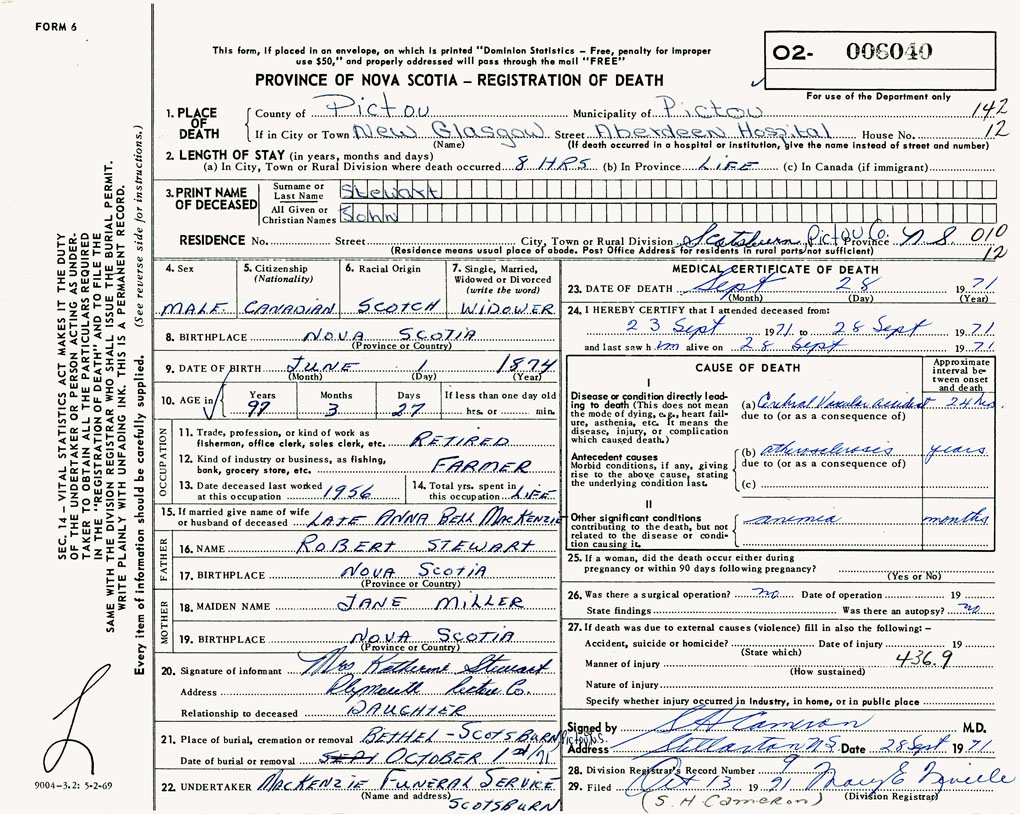 FORM 6
This form, if placed in an envelope, on which is printed "Dominion Statistics – Free, penalty for improper
use $50," and properly addressed will pass through the mail "FREE"
O2- 006040
For use of the Department only
PROVINCE OF NOVA SCOTIA – REGISTRATION OF DEATH
SEC. 14 – VITAL STATISTICS ACT MAKES IT THE DUTY
OF THE UNDERTAKER OR PERSON ACTING AS UNDER-
TAKER TO OBTAIN ALL THE PARTICULARS REQUIRED
IN THE "REGISTRATION OF DEATH" AND TO FILE THE
SAME WITH THE DIVISION REGISTRAR WHO SHALL ISSUE THE BURIAL PERMIT.
WRITE PLAINLY WITH UNFADING INK. THIS IS A PERMANENT RECORD.
Every item of information should be carefully supplied. (See reverse side for instructions.)
9004-3.2: 5-2-69
1. PLACE OF DEATH County of Pictou Municipality of Pictou 142
If in City or Town New Glasgow Street Aberdeen Hospital House No. 12
(Name) (If death occurred in a hospital or institution, give the name instead of street and number)
2. LENGTH OF STAY (in years, months and days)
(a) In City, Town or Rural Division where death occurred 8 HRS (b) In Province LIFE (c) In Canada (if immigrant)
3. PRINT NAME OF DECEASED Surname or Last Name Stewart
All Given or Christian Names John
RESIDENCE No. Street City, Town or Rural Division Scotsburn Pictou Co. Province N S 010
(Residence means usual place of abode. Post Office Address for residents in rural parts not sufficient) 12
4. Sex MALE
5. Citizenship (Nationality) CANADIAN
6. Racial Origin SCOTCH
7. Single, Married, Widowed or Divorced (write the word) WIDOWER
8. BIRTHPLACE NOVA SCOTIA
(Province or Country)
9. DATE OF BIRTH JUNE 1 1874
(Month) (Day) (Year)
10. AGE in Years 97 Months 3 Days 27 If less than one day old hrs. or min.
OCCUPATION
11. Trade, profession, or kind of work as fisherman, office clerk, sales clerk, etc. RETIRED
12. Kind of industry or business, as fishing, bank, grocery store, etc. FARMER
13. Date deceased last worked at this occupation 1956
14. Total yrs. spent in this occupation LIFE
15. If married give name of wife or husband of deceased LATE ANNA BELL MACKENZIE
FATHER
16. NAME ROBERT STEWART
17. BIRTHPLACE NOVA SCOTIA
(Province or Country)
MOTHER
18. MAIDEN NAME JANE MILLER
19. BIRTHPLACE NOVA SCOTIA
(Province or Country)
20. Signature of informant Mrs Katherine Stewart
Address Plymouth Pictou Co.
Relationship to deceased DAUGHTER
21. Place of burial, cremation or removal BETHEL - SCOTSBURN Pictou N.S.
Date of burial or removal SEPT OCTOBER 1st/71
22. UNDERTAKER MACKENZIE FUNERAL SERVICE
(Name and address) SCOTSBURN
MEDICAL CERTIFICATE OF DEATH
23. DATE OF DEATH Sept 28 1971
(Month) (Day) (Year)
24. I HEREBY CERTIFY that I attended deceased from:
23 Sept 1971 to 28 Sept 1971
and last saw him alive on 28 Sept 1971
CAUSE OF DEATH
Approximate interval between onset and death
I
Disease or condition directly leading to death (This does not mean the mode of dying, e.g., heart failure, asthenia, etc. It means the disease, injury, or complication which caused death.)
(a) Cerebral Vascular accident 24 hrs.
due to (or as a consequence of)
Antecedent causes
Morbid conditions, if any, giving rise to the above cause, stating the underlying condition last.
(b) atherosclerosis years
due to (or as a consequence of)
(c)
II
Other significant conditions
contributing to the death, but not related to the disease or condition causing it.
anemia months
25. If a woman, did the death occur either during
pregnancy or within 90 days following pregnancy?
(Yes or No)
26. Was there a surgical operation? no Date of operation 19
State findings Was there an autopsy? no
27. If death was due to external causes (violence) fill in also the following: –
Accident, suicide or homicide? Date of injury 19
(State which)
Manner of injury 436.9
(How sustained)
Nature of injury
Specify whether injury occurred in industry, in home, or in public place
Signed by S H Cameron M.D.
Address Stellarton N.S. Date 28 Sept 1971
28. Division Registrar's Record Number 9
29. Filed Oct 13 1971 Mary E
(S. H Cameron) (Division Registrar)